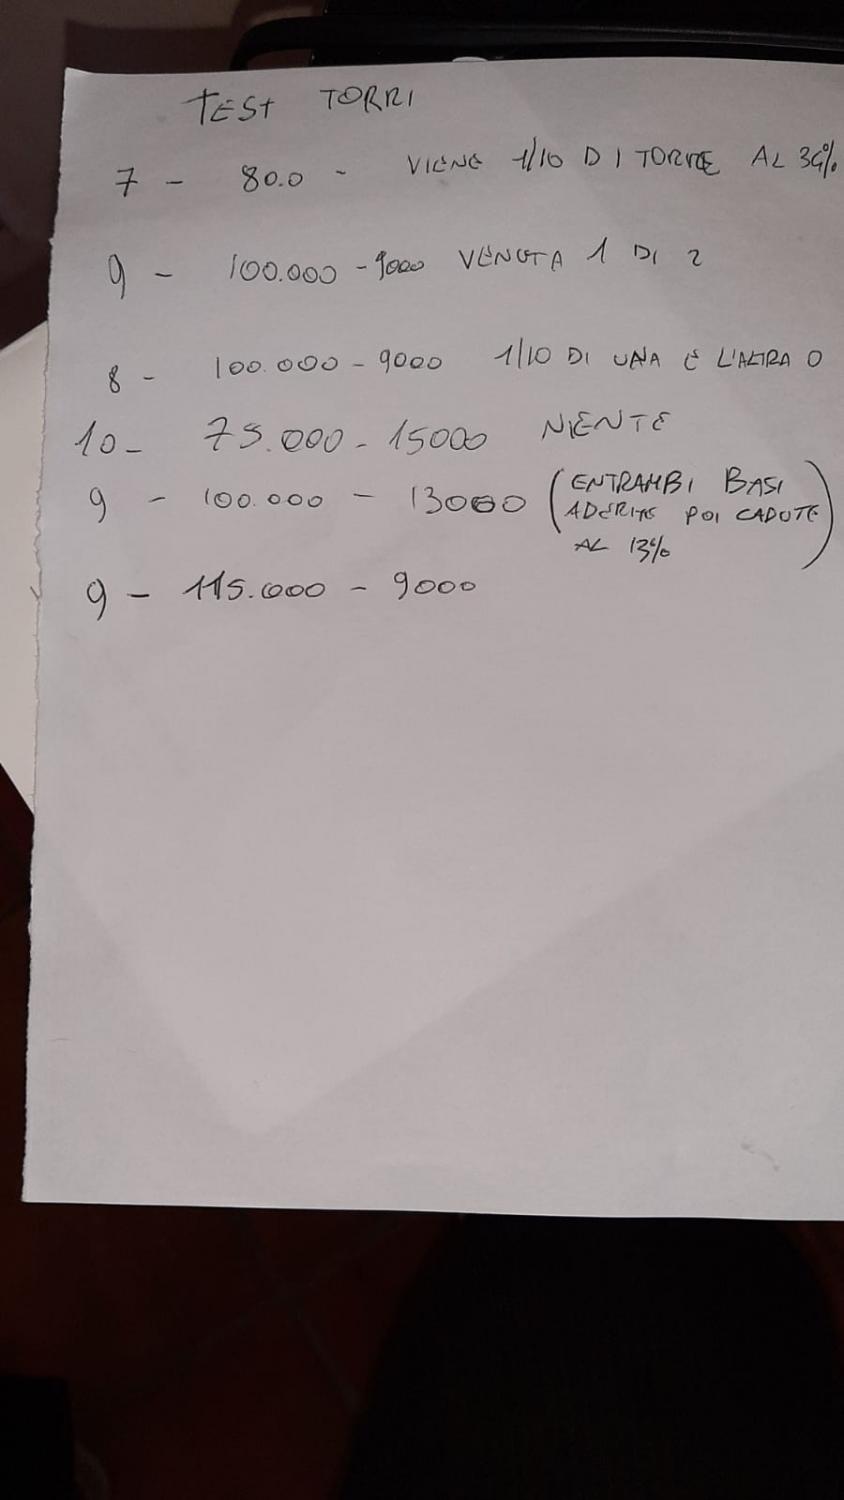 TEST TORRI
7 - 80.0 - VIENE 1/10 DI TORRE AL 34%
9 - 100.000 - 9000 VENUTA 1 DI 2
8 - 100.000 - 9000 1/10 DI UNA E L'ALTRA 0
10 - 75.000 - 15000 NIENTE
9 - 100.000 - 13000 (ENTRAMBI BASI
ADERITE POI CADUTE
AL 13%)
9 - 115.000 - 9000